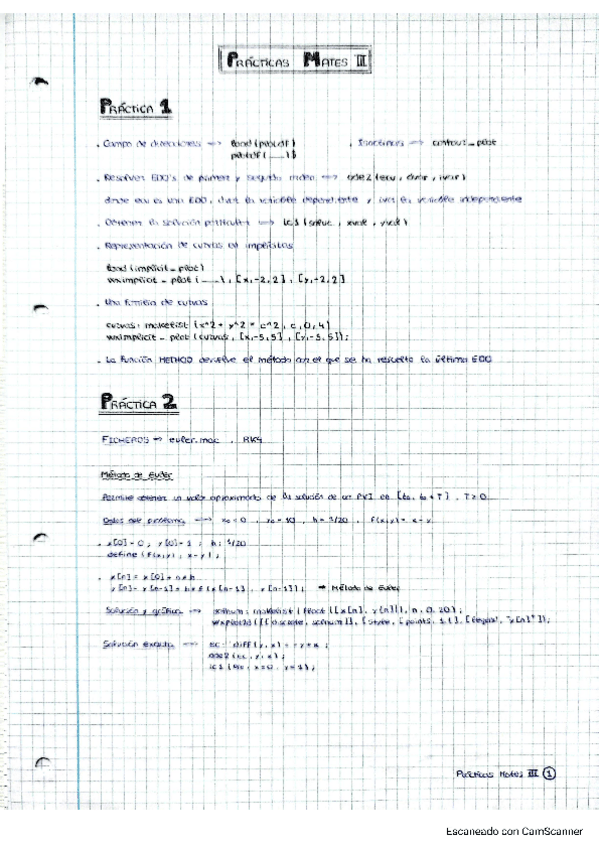 PRÁCTICAS MATES III
PRÁCTICA 1
. Campo de direcciones → load (plotdf) . Isoclinas → contour_plot
plotdf (.....)$
. Resolver EDO's de primer y segundo orden → ode2 (ecu, dvar, ivar)
donde ecu es una EDO, dvar la variable dependiente y ivar la variable independiente
. Obtener la solución particular → ic1 (soluc, xval, yval)
. Representación de curvas en implícitas
load (implicit_plot)
wximplicit_plot (.....), [x,-2,2], [y,-2,2]
. Una familia de curvas
curvas: makelist (x^2 + y^2 = c^2, c, 0, 4)
wximplicit_plot (curvas, [x,-5,5], [y,-5,5]);
. La función METHOD devuelve el método con el que se ha resuelto la última EDO
PRÁCTICA 2
FICHEROS → euler.mac , RK4
Método de Euler
Permite obtener un valor aproximado de la solución de un PVI en [to, to+T], T>0
Datos del problema → x0=0,
. x[0]=0, y[0]=1; h: 1/20
define (f(x,y), x-y);
. x[n]:= x[0]+n*h
y[n]:= y[n-1]+h*f(x[n-1], y[n-1]); → Método de Euler
Solución y gráfica → solnum: makelist (float ([x[n], y[n]]), n, 0, 20);
wxplot2d ([[discrete, solnum]], [style, [points, 1.]], "y[n]"]);
Solución exacta → diff(y,x)
ode2 (ec, y, x);
ic1 (%o, x=0, y=1);
Prácticas Mates III 1
Escaneado con CamScanner